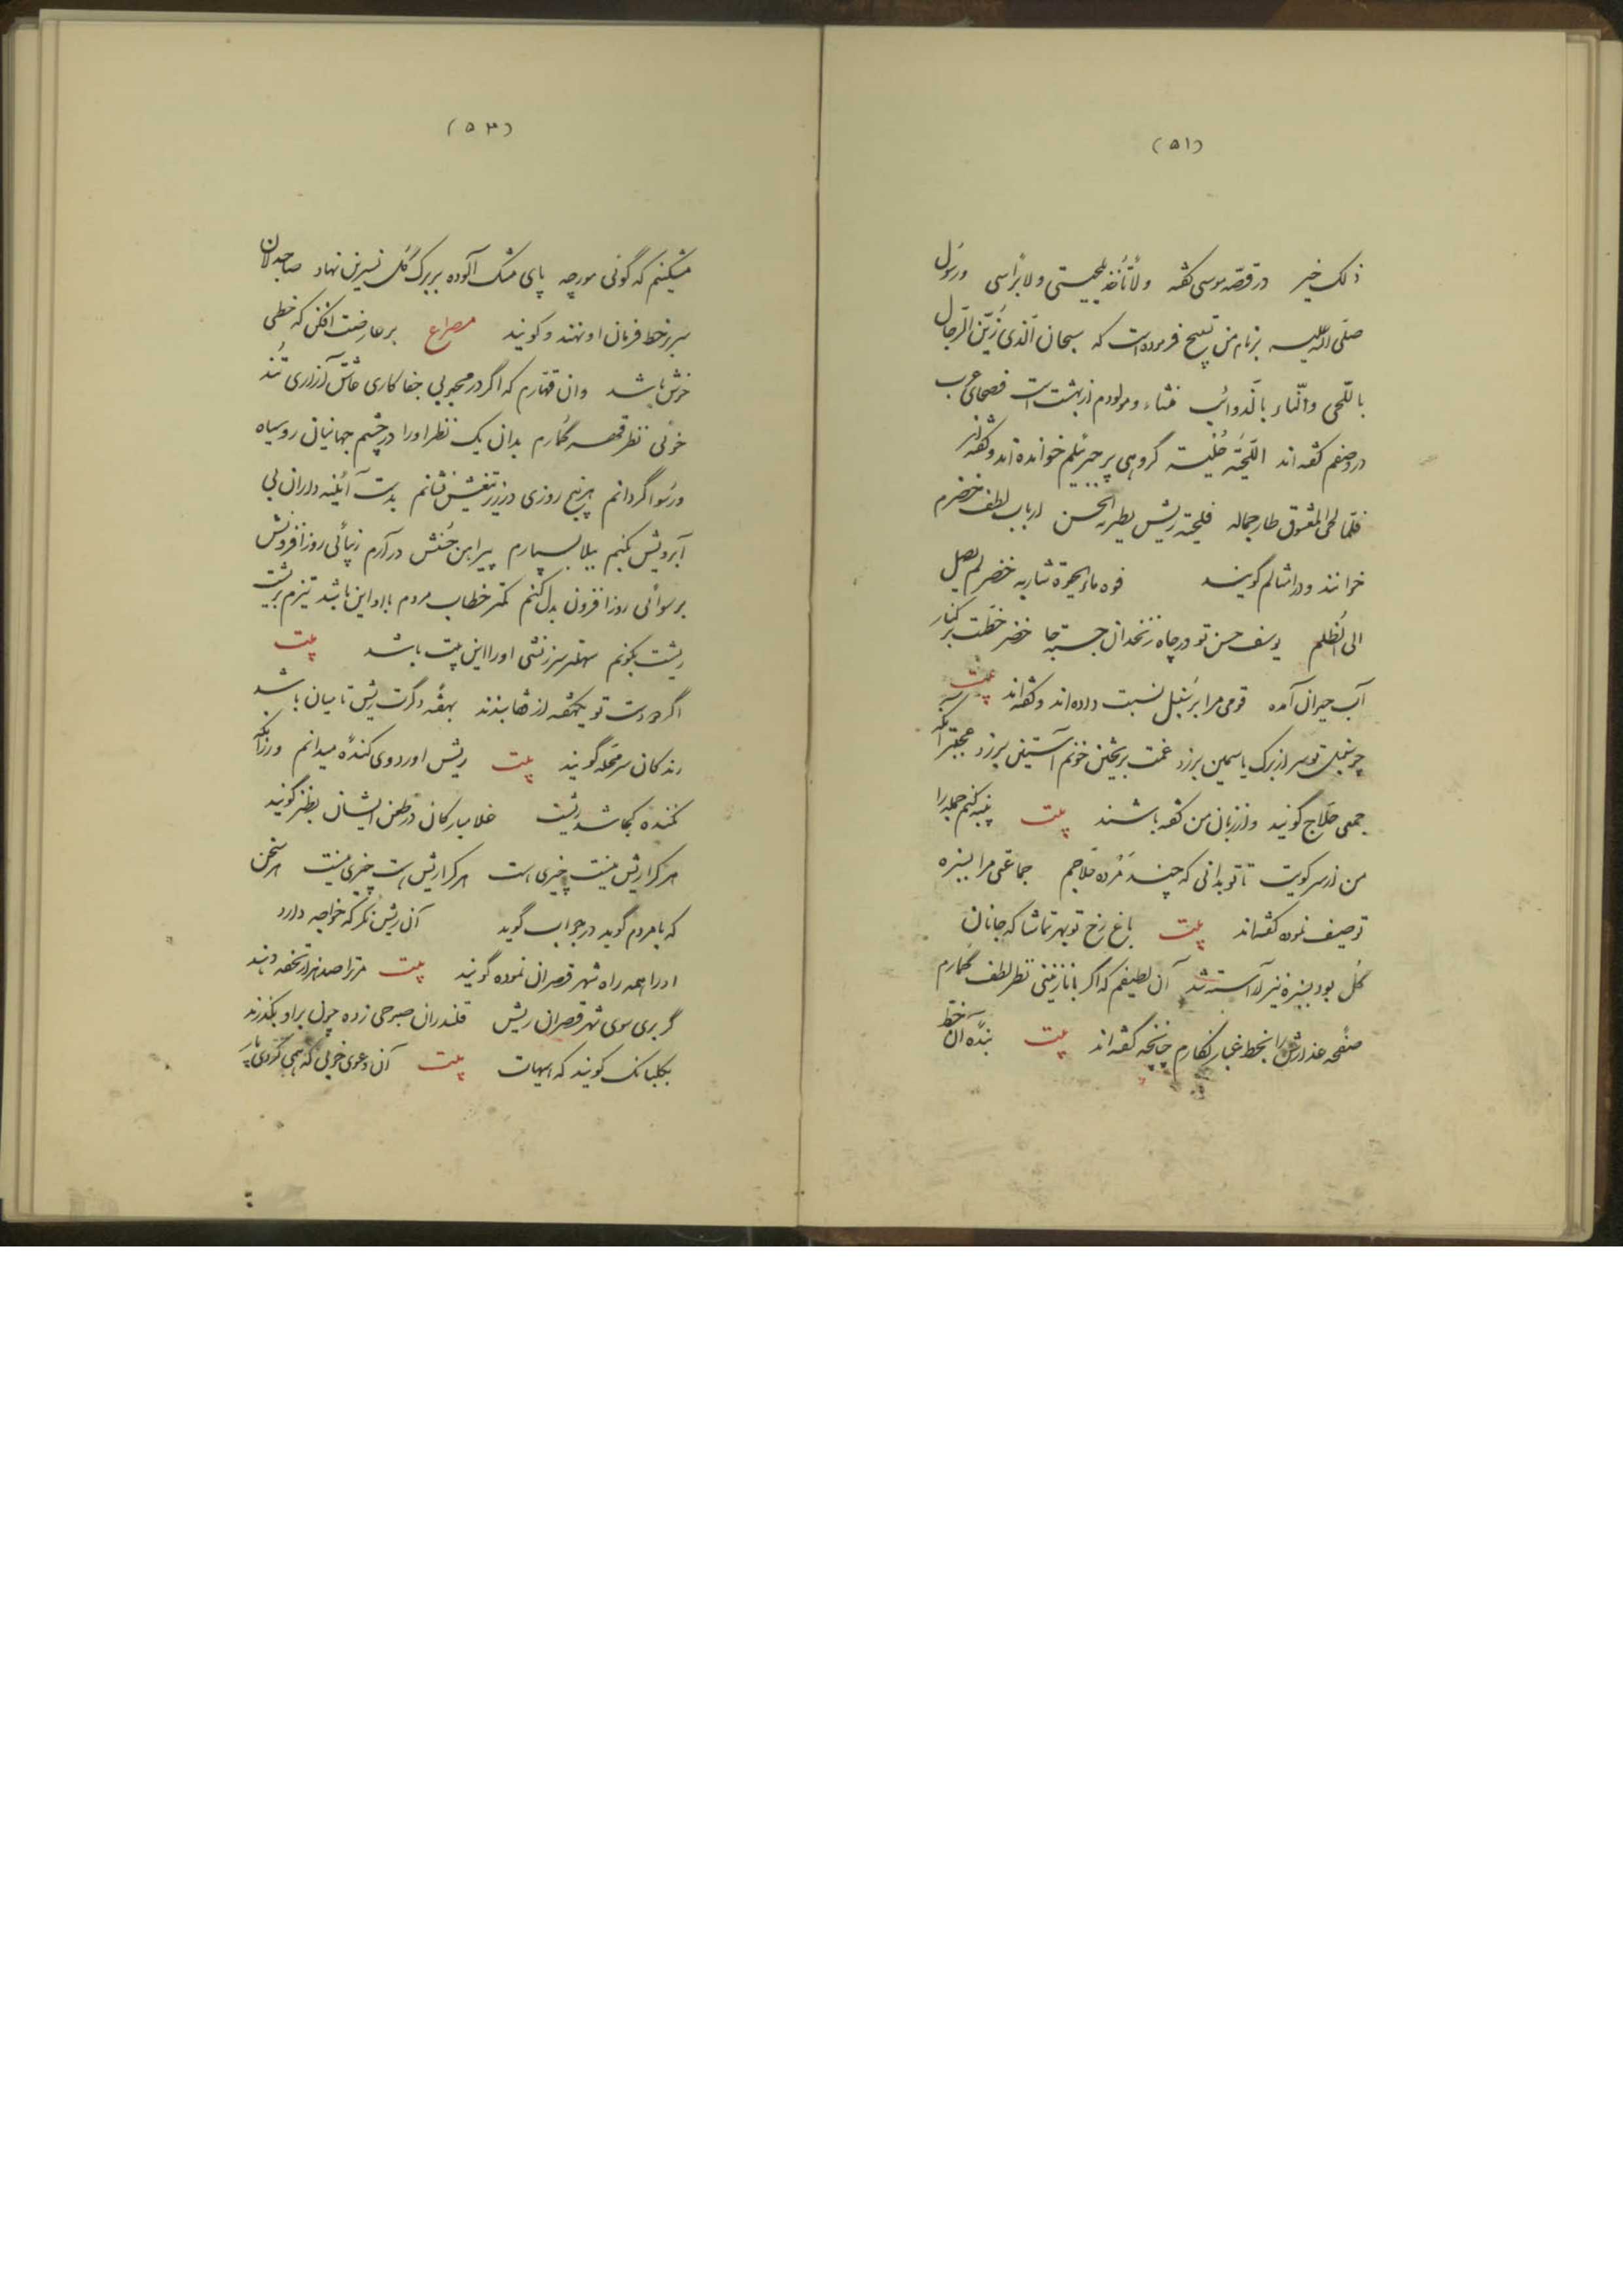 (۵۱)
ذلک خیر در قصّه موسی گفته ولا تأخذ بلحیتی ولا برأسی ورسول
صلّی الله علیه بر نام من تسبیح فرموده است که سبحان الّذی زیّن الرّجال
باللّحی والنّساء بالذّوائب منشاء ومولودم از بهشت است فصحای عرب
در وصفم گفته اند اللّحیة حلیة گروهی پر جبرئیلم خوانده اند وگفته اند
فلمّا لحی المعشوق طار جماله فلحیته ریش یطیر به الحسن ارباب لطف خضرم
خوانند ودر امثالم گویند فوه ماء الحیوة شاربه خضر لم یصل
الی الظلم یوسف حسن تو در چاه زنخدان جسته جا خضر خطت بر کنار
آب حیوان آمده قومی مرا بر سنبل نسبت داده اند وگفته اند بیت
چو سنبل تو سر از برک یاسمین برزد غمت بریختن خونم آستین برزد عجبتر آنکه
جمعی حلّاج گویند واز زبان من گفته باشند بیت پنبه کنم جمله را
من از سر کویت تا تو بدانی که چند مرده حلاجم جماعتی مرا بسبزه
توصیف نموده گفته اند بیت باغ رخ تو بهر تماشا که جانان
گل بود بسبزه نیز آراسته شد آن لطیفم که اگر با نازنینی نظر لطف گمارم
صفحه عذارش را بخط غبار نگارم چنانچه گفته اند بیت بنده آن خط
(۵۳)
مشکینم که گوئی مورچه پای مشک آلوده بر برک گل نسرین نهاد صاحبدلان
سر بر خط فرمان او نهند وگویند مصراع بر عارضت افکن که خطی
خوش باشد وان قهّارم که اگر در محبوبی جفا کاری عاشق آزاری تند
خوئی نظر قهر گمارم بدان یک نظر او را در چشم جهانیان روسیاه
ورسوا گردانم بر پنج روزی در زیر تیغش نشانم بدست آئینه داران بی
آبرویش کنم ببلا بسپارم پیراهن حسنش در آرم زیبائی روز افزونش
برسوائی روز افزون بدل کنم کمتر خطاب مردم با او این باشد تیزم بریشت
ریشت بکونم سهلتر سرزنشی او را این بیت باشد بیت
اگر دو دست تو یکهفته از قفا بندند بهفته دگرت ریش تا میان باشد
رندکان سر محله گویند بیت ریش آورد وی کنده میدانم ورنه آنکه
کننده کجا شد ریشت غلامبارکان در طعن ایشان بطنز گویند
هر کرا ریش نیست چیزی هست هر کرا ریش هست چیزی نیست هر سخن
که با مردم گوید در جواب گوید آن ریش نگر که خواجه دارد
او را همه راه شهر قصران نموده گویند بیت مر ترا صد هزار تحفه دهند
گر بری سوی شهر قصران ریش قلندران صبوحی زده چون بر او بگذرند
بگلبانک گویند که هیهات بیت آن دعوی خوبی که همی کردی پار